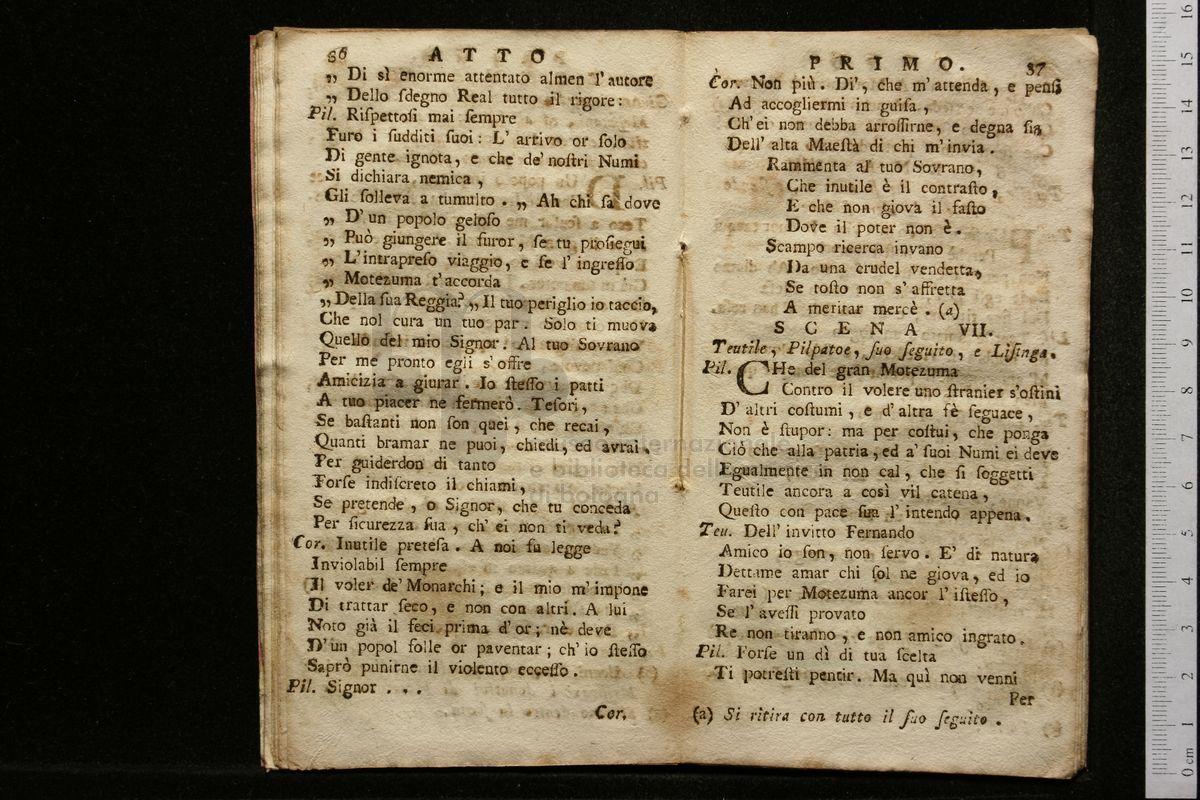 86 ATTO
„ Di sì enorme attentato almen l'autore
„ Dello ſdegno Real tutto il rigore:
Pil. Riſpettoſi mai ſempre
Furo i ſudditi ſuoi: L' arrivo or ſolo
Di gente ignota, e che de' noſtri Numi
Si dichiara nemica,
Gli ſolleva a tumulto. „ Ah chi ſa dove
„ D' un popolo geloſo
„ Può giungere il furor, ſe tu proſiegui
„ L'intrapreſo viaggio, e ſe l' ingreſſo
„ Motezuma t'accorda
„ Della ſua Reggia? „ Il tuo periglio io taccio,
Che nol cura un tuo par. Solo ti muova
Quello del mio Signor. Al tuo Sovrano
Per me pronto egli s' offre
Amicizia a giurar. Io ſteſſo i patti
A tuo piacer ne fermerò. Teſori,
Se baſtanti non ſon quei, che recai,
Quanti bramar ne puoi, chiedi, ed avrai.
Per guiderdon di tanto
Forſe indiſcreto il chiami,
Se pretende, o Signor, che tu conceda
Per ſicurezza ſua, ch' ei non ti veda?
Cor. Inutile preteſa. A noi fu legge
Inviolabil ſempre
Il voler de' Monarchi; e il mio m' impone
Di trattar ſeco, e non con altri. A lui
Noto già il feci prima d' or; nè deve
D' un popol folle or paventar; ch' io ſteſſo
Saprò punirne il violento ecceſſo.
Pil. Signor . . .
Cor.
PRIMO. 87
Cor. Non più. Di', che m' attenda, e penſi
Ad accogliermi in guiſa,
Ch' ei non debba arroſſirne, e degna ſia
Dell' alta Maeſtà di chi m' invia.
Rammenta al tuo Sovrano,
Che inutile è il contraſto,
E che non giova il faſto
Dove il poter non è.
Scampo ricerca invano
Da una crudel vendetta,
Se toſto non s' affretta
A meritar mercè. (a)
SCENA VII.
Teutile, Pilpatoe, ſuo ſeguito, e Liſinga.
Pil. CHe del gran Motezuma
Contro il volere uno ſtranier s'oſtini
D' altri coſtumi, e d' altra fè ſeguace,
Non è ſtupor: ma per coſtui, che ponga
Ciò che alla patria, ed a' ſuoi Numi ei deve
Egualmente in non cal, che ſi ſoggetti
Teutile ancora a così vil catena,
Queſto con pace ſua l' intendo appena.
Teu. Dell' invitto Fernando
Amico io ſon, non ſervo. E' di natura
Dettame amar chi ſol ne giova, ed io
Farei per Motezuma ancor l' iſteſſo,
Se l' aveſſi provato
Re non tiranno, e non amico ingrato.
Pil. Forſe un dì di tua ſcelta
Ti potreſti pentir. Ma quì non venni
Per
(a) Si ritira con tutto il ſuo ſeguito.